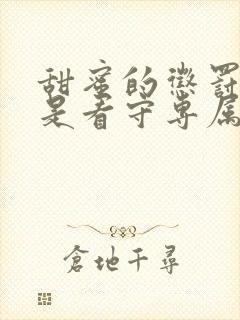 甜蜜的懲罰
是看守專屬
倉地千尋